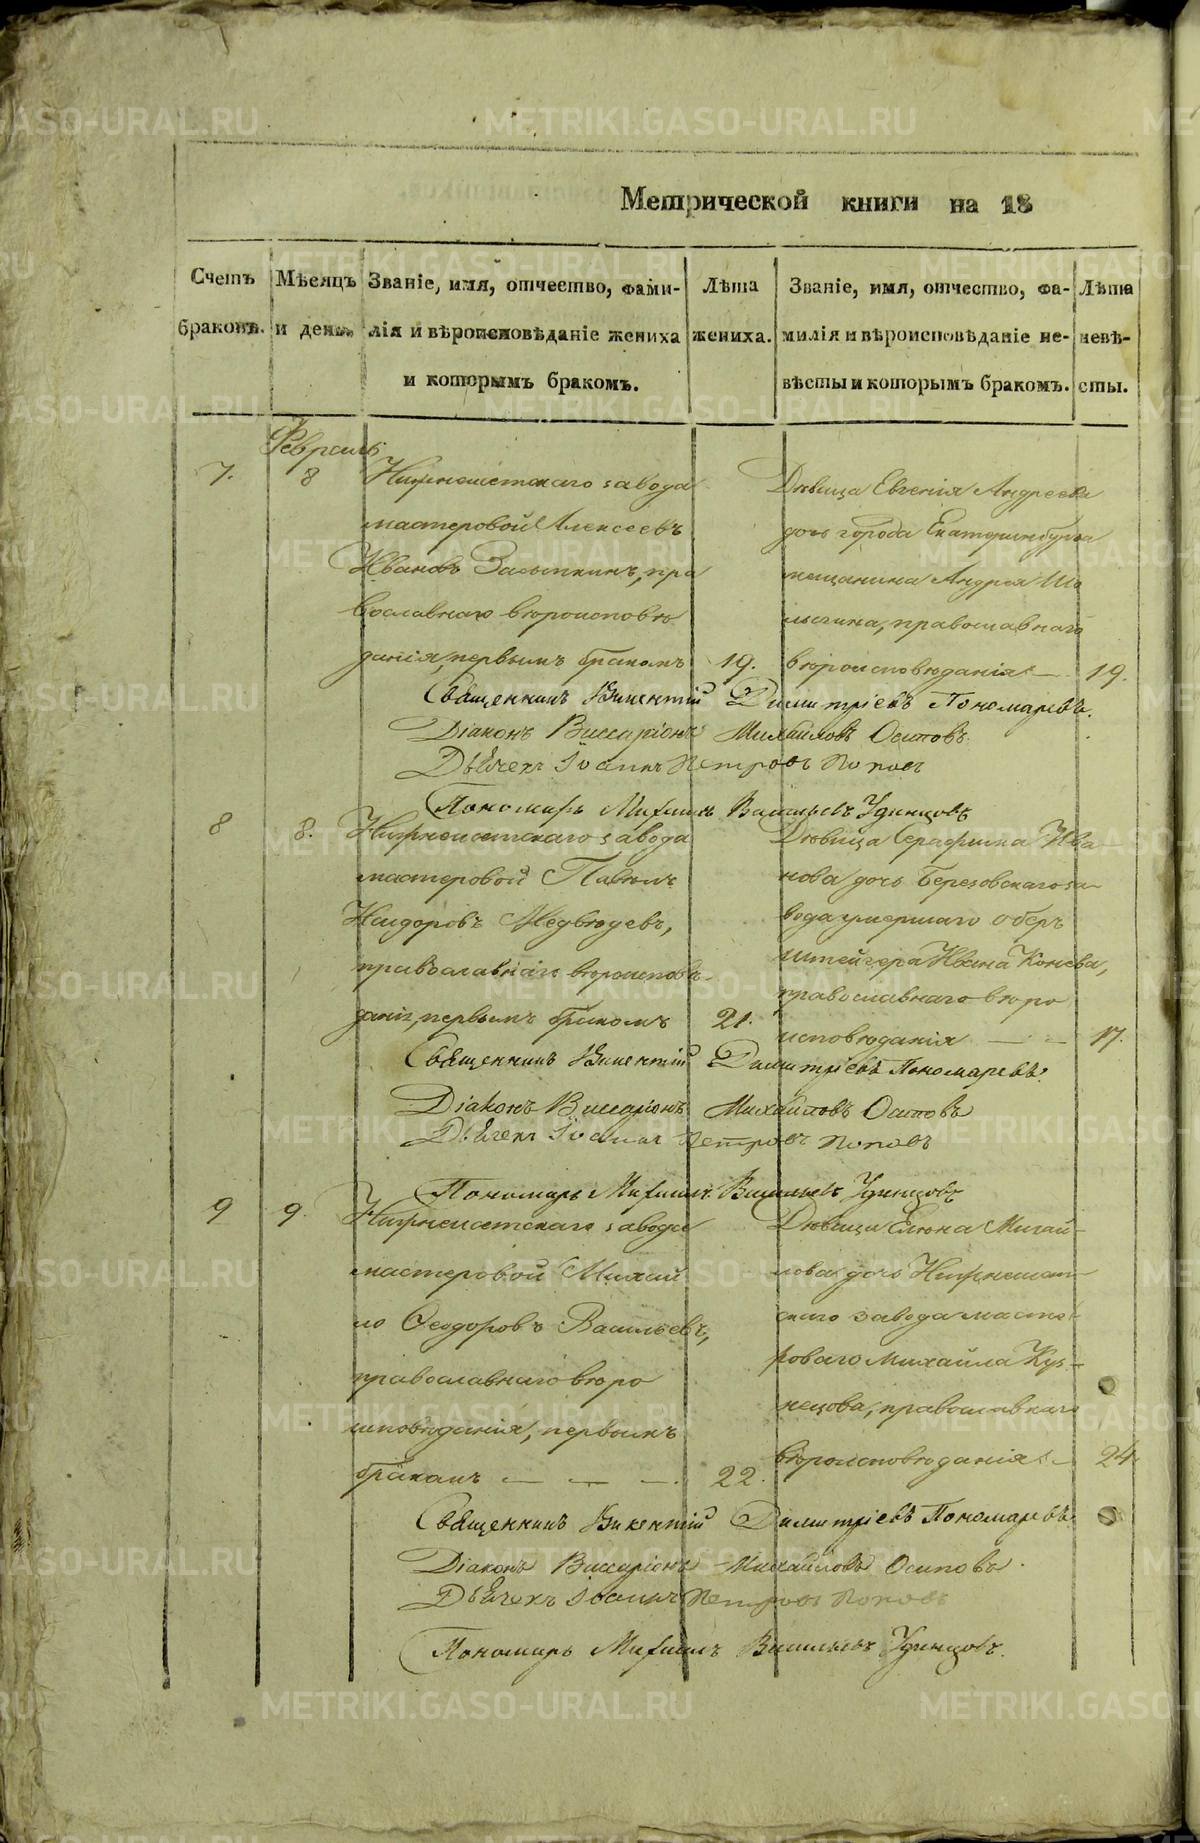 Метрической книги на 18
Счетъ браковъ.
Мѣсяцъ и день.
Званіе, имя, отчество, фами-
лія и вѣроисповѣданіе жениха
и которымъ бракомъ.
Лѣта жениха.
Званіе, имя, отчество, фа-
милія и вѣроисповѣданіе не-
вѣсты и которымъ бракомъ.
Лѣта невѣ-
сты.
Февраль
7.
8
Нижнеисетскаго завода
мастеровой Алексѣевъ
Ивановъ Засыпкинъ, пра
вославнаго вѣроисповѣ
данія, первымъ бракомъ
19.
Дѣвица Евгенія Андреева
дочь города Екатеринбурга
мещанина Андрея
православнаго
вѣроисповѣданія —
19.
Священникъ Викентій Димитріевъ Пономаревъ.
Діаконъ Виссаріонъ Михайловъ Осиповъ
Дьячекъ Іоаннъ Петровъ Поповъ
Пономарь Михаилъ Васильевъ Удинцовъ
8
8.
Нижнеисетскаго завода
мастеровой Павелъ
Исидоровъ Медвѣдевъ,
православнаго вѣроисповѣ
данія, первымъ бракомъ
21.
Дѣвица Серафима Ива
нова дочь Березовскаго за-
вода умершаго Оберъ
штейгера Ивана Конева,
православнаго вѣро
исповѣданія — —
17.
Священникъ Викентій Димитріевъ Пономаревъ.
Діаконъ Виссаріонъ Михайловъ Осиповъ
Дьячекъ Іоаннъ Петровъ Поповъ
Пономарь Михаилъ Васильевъ Удинцовъ
9
9.
Нижнеисетскаго завода
мастеровой Михаи
ло Ѳеодоровъ Васильевъ,
православнаго вѣро
исповѣданія, первымъ
бракомъ — — —
22.
Дѣвица Елена Михай-
лова дочь Нижнеисет-
скаго завода масте-
роваго Михаила Куз-
нецова, православнаго
вѣроисповѣданія —
24.
Священникъ Викентій Димитріевъ Пономаревъ
Діаконъ Виссаріонъ Михайловъ Осиповъ.
Дьячекъ Іоаннъ Петровъ Поповъ
Пономарь Михаилъ Васильевъ Удинцовъ.
METRIKI.GASO-URAL.RU